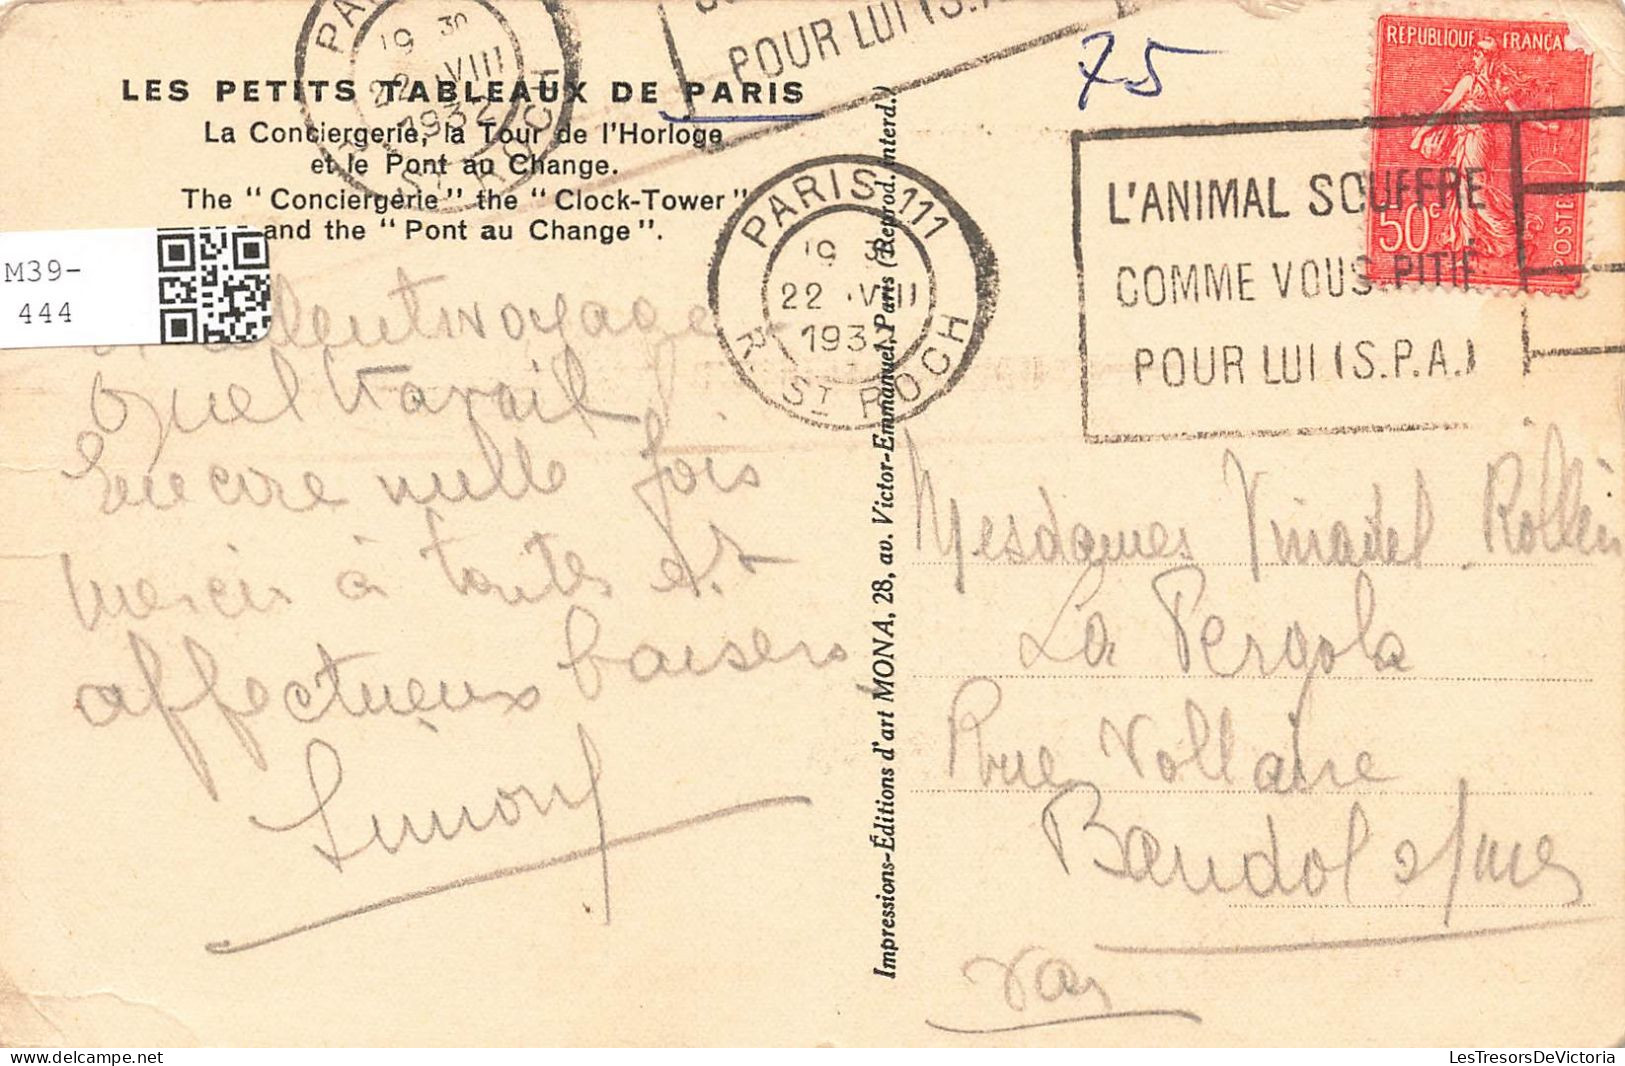 LES PETITS TABLEAUX DE PARIS
La Conciergerie, la Tour de l'Horloge
et le Pont au Change.
The "Conciergerie" the "Clock-Tower"
and the "Pont au Change".
M39-
444
voyage
Quel travail
Encore mille fois
merci à toutes et
affectueux baisers
Simone
Impressions-Éditions d'art MONA, 28, av. Victor-Emmanuel, Paris (Reprod. interd.)
POUR LUI (S.P.A.)
22 VIII
1932
ST ROCH
75
PARIS 111
19 30
22 VIII
1932
R. ST ROCH
L'ANIMAL SOUFFRE
COMME VOUS. PITIÉ
POUR LUI (S.P.A.)
REPUBLIQUE FRANÇAISE
50c
POSTES
Mesdames Rollin
La Pergola
Rue Voltaire
Bandol s/mer
Var
LesTresorsDeVictoria